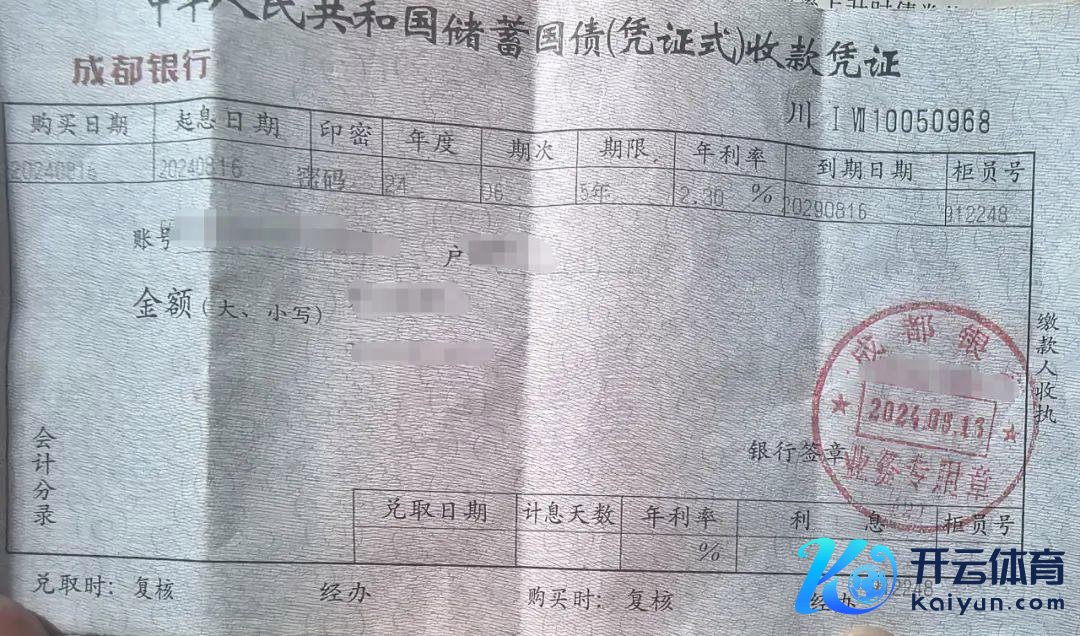 中华人民共和国储蓄国债(凭证式)收款凭证
成都银行
川 I Ⅶ 10050968
购买日期 起息日期 印密 年度 期次 期限 年利率 到期日期 柜员号
20240816 20240816 密码 24 06 5年 2.30 % 20290816 912248
账号
户
金额(大、小写)
缴款人收执
会计分录
成都银
银行签章
业务专用章
兑取日期 计息天数 年利率 利 息 柜员号
%
兑取时: 复核 经办 购买时: 复核 经办
开云体育
Kaiyun.com